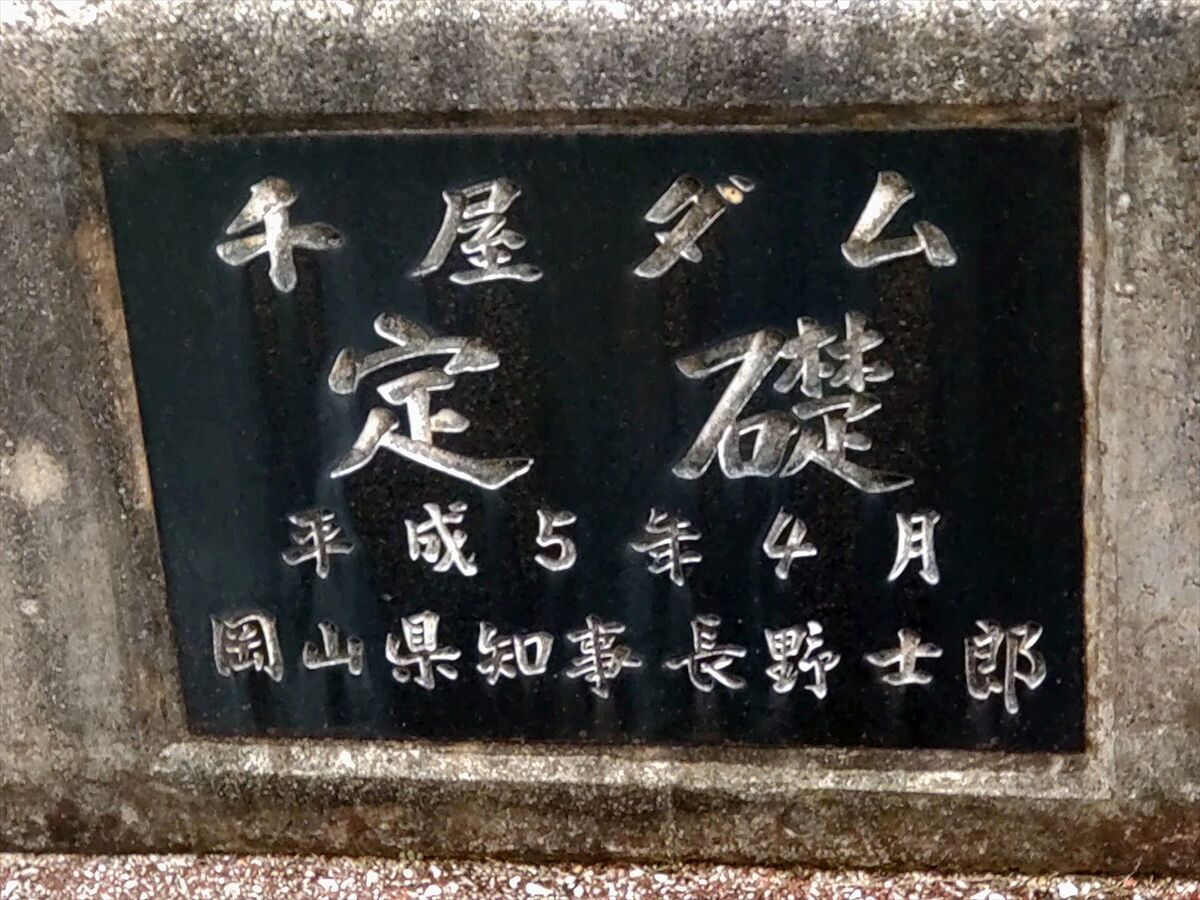 千屋ダム
定礎
平成5年4月
岡山県知事長野士郎